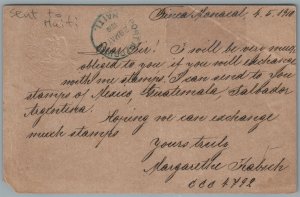 sent to
Haiti
Finca Monacal 4.5.1910
Dear Sir! I will be very much
obliged to you if you will exchange
with me stamps. I can send to you
stamps of Mexico, Guatemala, Salvador
Argentina.
Hoping we can exchange
much stamps
Yours truly,
Margarethe
CCC 4792